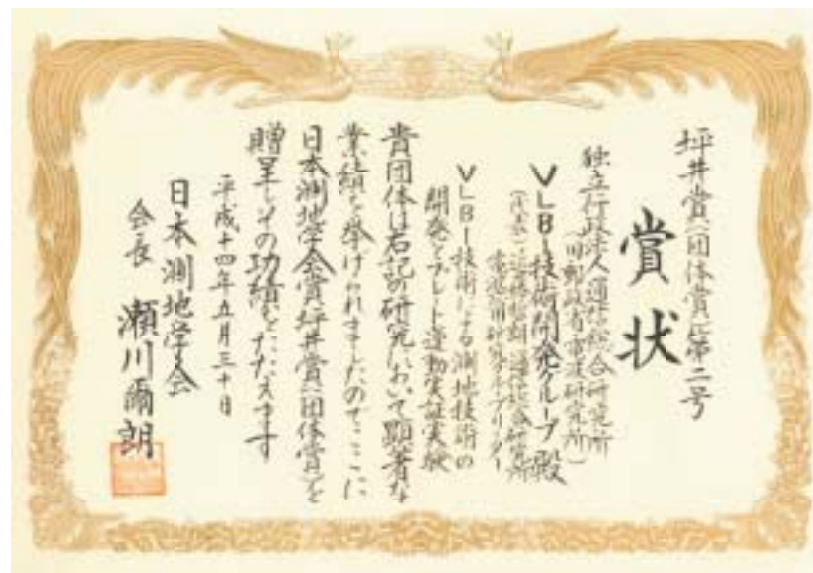 坪井賞(団体賞)第二号
賞状
独立行政法人通信総合研究所
(旧郵政省電波研究所)
VLBI技術開発グループ殿
VLBI技術による測地技術の
開発とプレート運動実証実験
貴団体は右記の研究において顕著な
業績を挙げられましたのでここに
日本測地学会賞坪井賞(団体賞)を
贈呈しその功績をたたえます
平成十四年五月三十日
日本測地学会
会長 瀬川爾朗